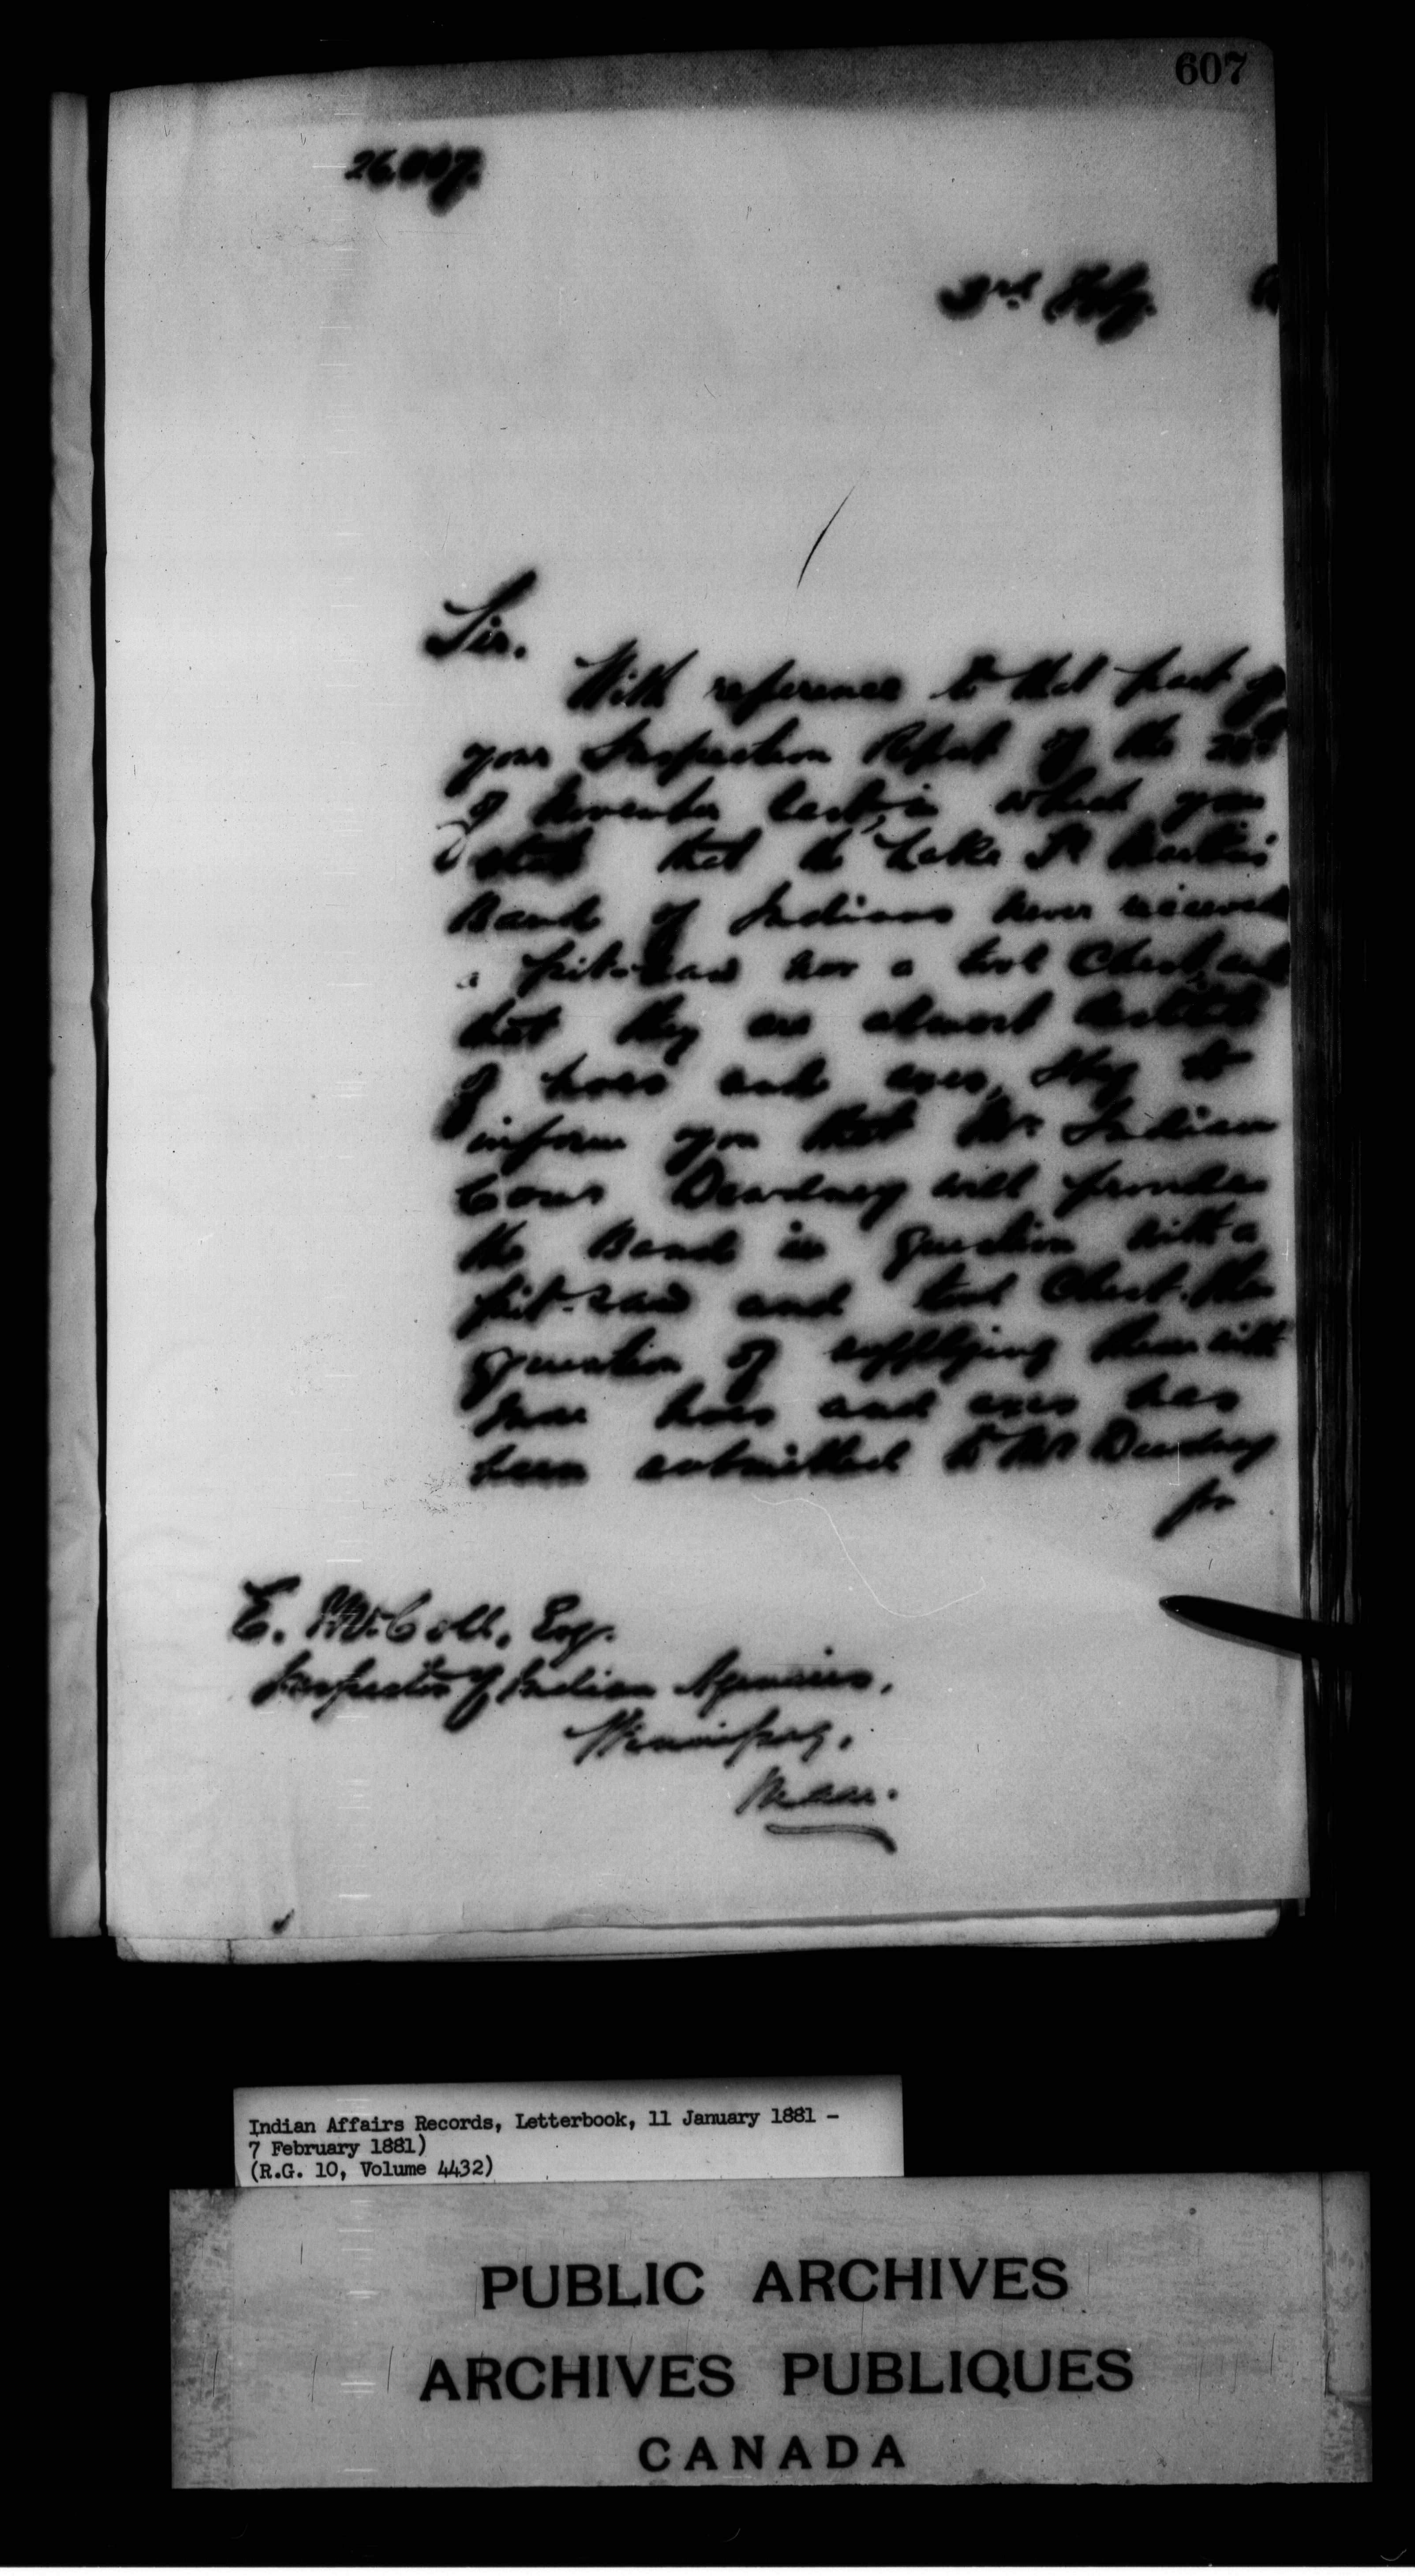 607
3rd Feby.
Sir.
With reference to that part of
your Inspection Report of the
of November last, in which you
state that the Lake St Martin's
Band of Indians never received
a pit-saw nor a tool Chest, and
that they are almost destitute
of hoes and axes, I beg to
inform you that Mr Indian
Comr Dewdney will provide
the Band in question with a
pit-saw and tool Chest. The
question of supplying them with
hoes and axes has
been submitted to Mr Dewdney
for
E. McColl, Esq.
Inspector of Indian Agencies,
Winnipeg,
Man.
Indian Affairs Records, Letterbook, 11 January 1881 -
7 February 1881)
(R.G. 10, Volume 4432)
PUBLIC ARCHIVES
ARCHIVES PUBLIQUES
CANADA